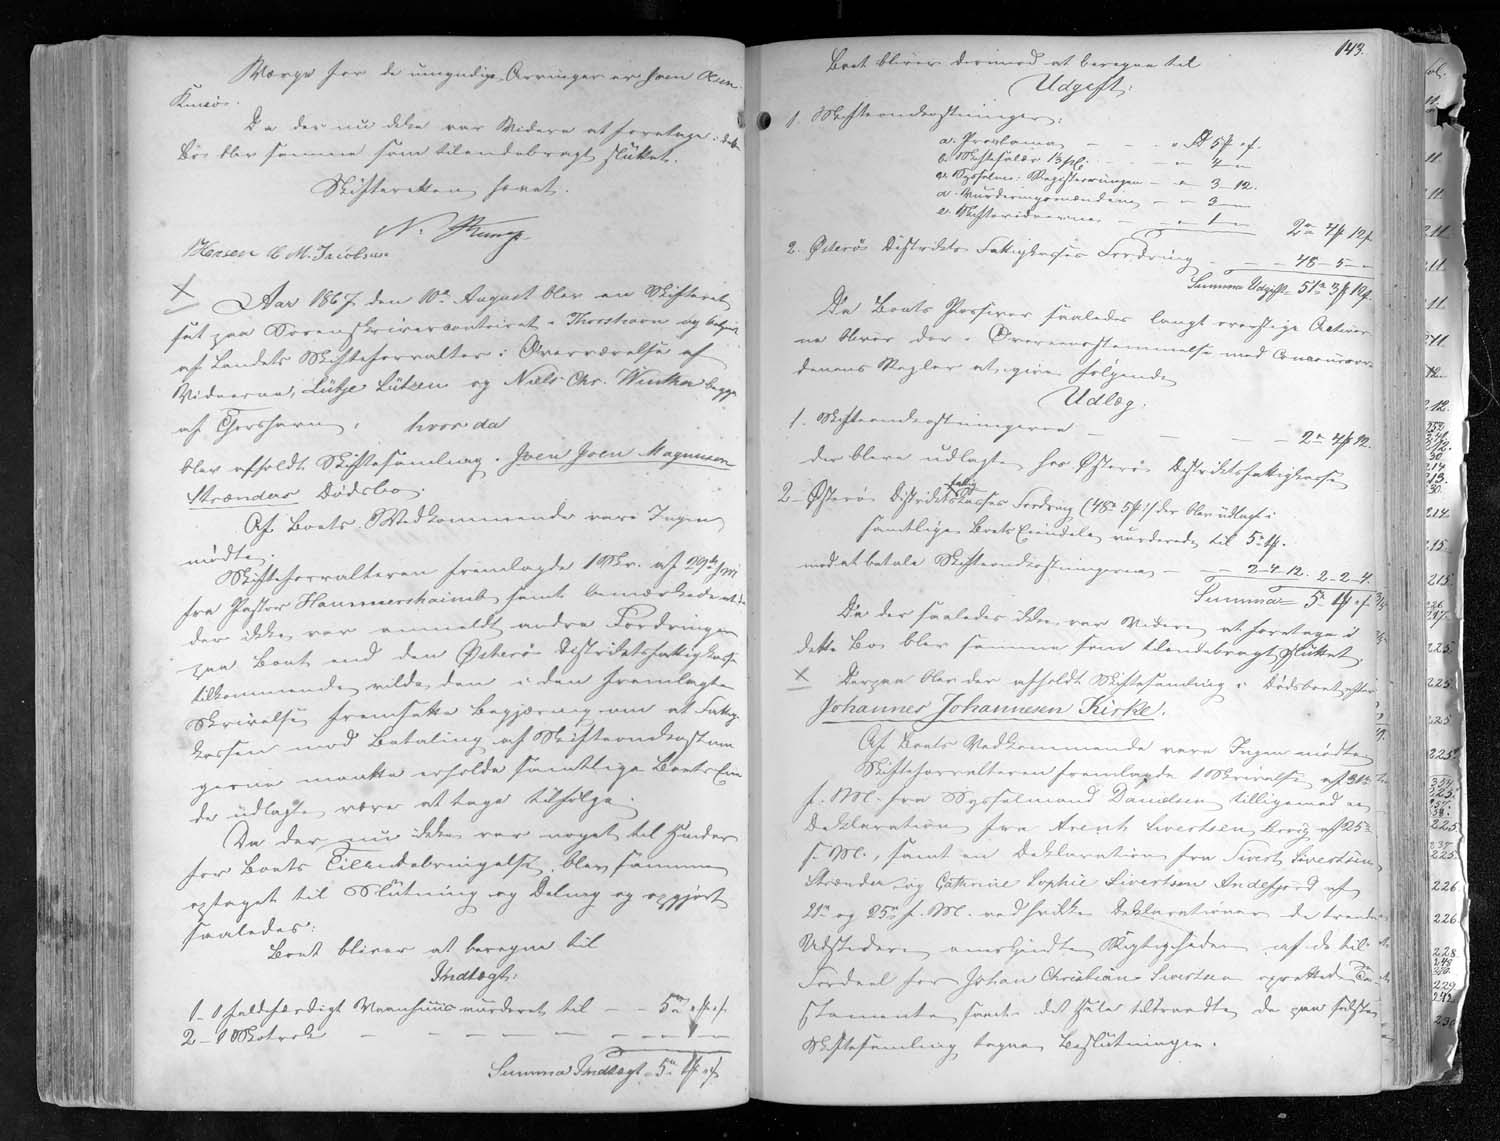 Værge for de umyndige Arvinger er Joen Olsen
Da der nu ikke var Videre at foretage i dette
Bo blev samme som tilendebragt sluttet.
Skifteretten hævet.
Hansen C M. Jacobsen
X Aar 1867 den 10de August blev en Skifteret
sat paa Sorenskrivercontoiret i Thorshavn og betjent
af Landets Skifteforvalter i Overværelse af
Vidnerne, Lütje Lützen og Niels Chr. Winther begge
af Thorshavn; hvor da
blev afholdt Skiftesamling i Joen Joen Magnussen
Strænders Dødsbo.
Af Boets Vedkommende vare Ingen
mødte.
Skifteforvalteren fremlagde 1 Skr. af 29de f. M.
fra Pastor Hammershaimb samt bemærkede at da
der ikke var anmeldt andre Fordringer
paa Boet end den Østerø Distriktsfattigkasse
tilkommende vilde den i den fremlagte
Skrivelse fremsatte Begjæring om at Fattig-
kassen mod Betaling af Skifteomkostnin-
gerne maatte erholde samtlige Boets Eien-
de udlagte være at tage tilfølge.
Da der nu ikke var noget til Hinder
for Boets Tilendebringelse, blev samme
optaget til Slutning og Deling og opgjort
saaledes:
Boet bliver at beregne til
Indtægt:
1 - 1 faldfærdigt Vaanhuus vurderet til - - 5 rd " " 
2 - 1 Skotræk - - - - 
Summa Indtægt 5 rd 1 

143.
Boet bliver derimod at beregne til
Udgift:
1. Skifteomkostninger:
a. Proclama - - - 5 
b. Skiftefolder 13 - - 4 -
c. Sysselm: Registreringen - - 3 - 12.
d. Vurderingsmændene - - 3 -
e. Skiftevidnerne - - 1 -
2 rd 4 12
2. Østerø Distrikts Fattigkasses Fordring - - - 48 - 5 - "
Summa Udgift 51 rd 3 12
Da Boets Passiver saaledes langt overstige Activer-
ne bliver der i Overensstemmelse med Concoursor-
denens Regler at give følgende
Udlæg:
1. Skifteomkostningerne - - - - 2 rd 4 12
der bleve udlagte hos Østerø Distriktsfattigkasse
2 - Østerø Distriktsfattigkasses Fordring (48 rd 5 ) der blev udlagt i
samtlige Boets Eiendele vurderede til 5 rd 1
mod at betale Skifteomkostningerne - - 2 - 4. 12. 2 - 2 - 4.
Summa 5 rd 1
Da der saaledes ikke var Videre at foretage i
dette Bo blev samme som tilendebragt sluttet.
X Derpaa blev der afholdt Skiftesamling i Dødsboet efter
Johannes Johannesen Kirke.
Af Boets Vedkommende vare Ingen mødte.
Skifteforvalteren fremlagde 1 Skrivelse af 31te
f. M. fra Sysselmand Danielsen tilligemed en
Deklaration fra Arent Sivertsen af 25de
f. M., samt en Deklaration fra Sivert Sivertsen
Strænder og Cathrine Sophie Sivertsen Andefjord af
21de og 25de f. M. ved hvilke Deklarationer de trende
Udstedere anerkjendte Rigtigheden af de til
Fordeel for Johan Christian Sivertsen oprettede Te-
stamente samt det Hele tiltraadte de paa sidste
Skiftesamling tagne Beslutninger.